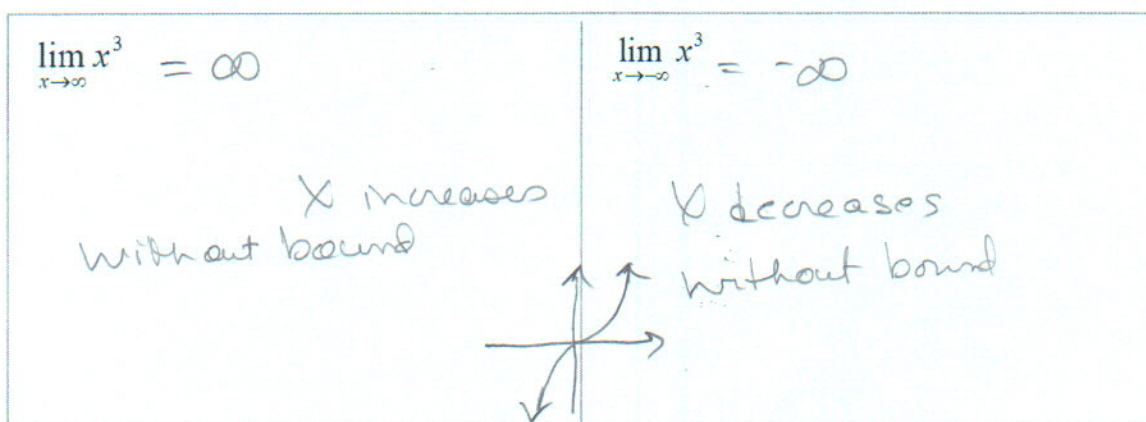 lim x³ = ∞
x→∞
X increases
without bound
lim x³ = -∞
x→-∞
X decreases
without bound